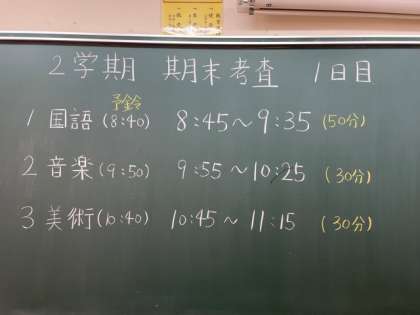 2学期 期末考査 1日目
予鈴
1 国語 (8:40) 8:45～9:35 (50分)
2 音楽 (9:50) 9:55～10:25 (30分)
3 美術 (10:40) 10:45～11:15 (30分)